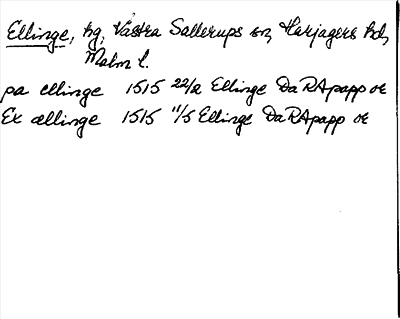 Ellinge, hg, Västra Sallerups sn, Harjagers hd,
Malm l.
pa ellinge 1515 22/2 Ellinge Da RA papp or
Ex ællinge 1515 11/5 Ellinge Da RA papp or